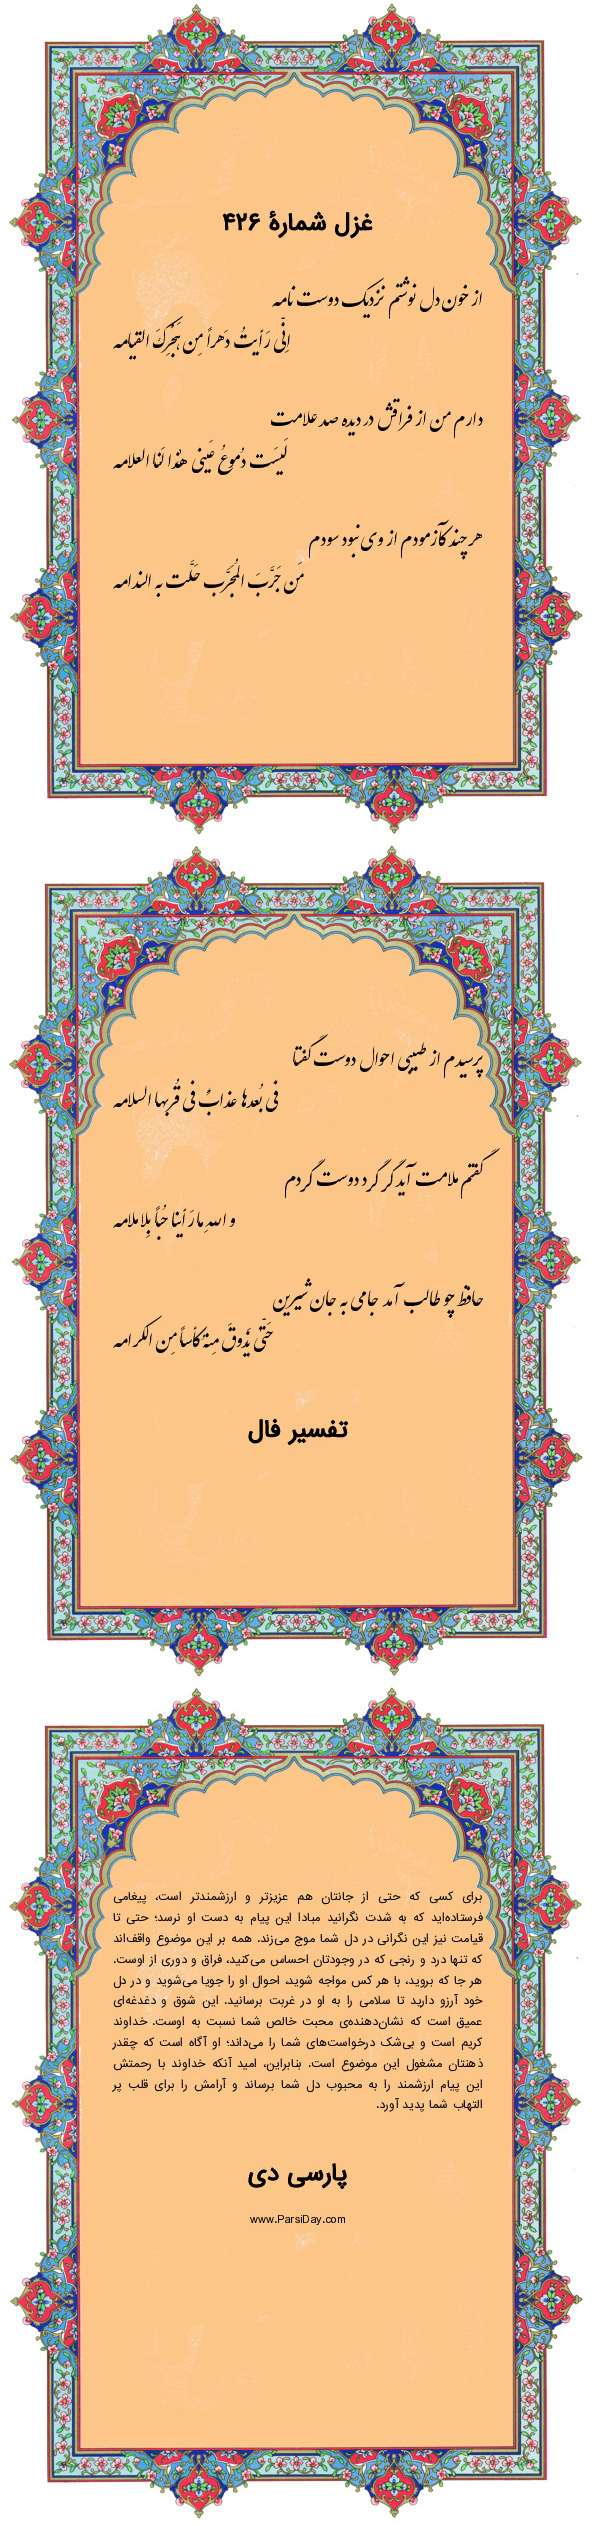 غزل شمارهٔ ۴۲۶
از خون دل نوشتم نزدیک دوست نامه
اِنّی رَأیتُ دَهراً مِن هَجْرِکَ القیامه
دارم من از فراقش در دیده صد علامت
لَیسَت دُموعُ عَینی هذا لَنا العلامه
هر چند کآزمودم از وی نبود سودم
مَن جَرَّبَ المُجَرَّب حَلَّت به الندامه
پرسیدم از طبیبی احوال دوست گفتا
فی بُعدها عذابٌ فی قُربها السلامه
گفتم ملامت آید گر گرد دوست گردم
و اللهِ ما رَأینا حُبّاً بِلا ملامه
حافظ چو طالب آمد جامی به جان شیرین
حَتّی یَذوقَ مِنهُ کأساً مِن الکرامه
تفسیر فال
برای کسی که حتی از جانتان هم عزیزتر و ارزشمندتر است، پیغامی
فرستاده‌اید که به شدت نگرانید مبادا این پیام به دست او نرسد؛ حتی تا
قیامت نیز این نگرانی در دل شما موج می‌زند. همه بر این موضوع واقف‌اند
که تنها درد و رنجی که در وجودتان احساس می‌کنید، فراق و دوری از اوست.
هر جا که بروید، با هر کس مواجه شوید، احوال او را جویا می‌شوید و در دل
خود آرزو دارید تا سلامی را به او در غربت برسانید. این شوق و دغدغه‌ای
عمیق است که نشان‌دهنده‌ی محبت خالص شما نسبت به اوست. خداوند
کریم است و بی‌شک درخواست‌های شما را می‌داند؛ او آگاه است که چقدر
ذهنتان مشغول این موضوع است. بنابراین، امید آنکه خداوند با رحمتش
این پیام ارزشمند را به محبوب دل شما برساند و آرامش را برای قلب پر
التهاب شما پدید آورد.
پارسی دی
www.ParsiDay.com